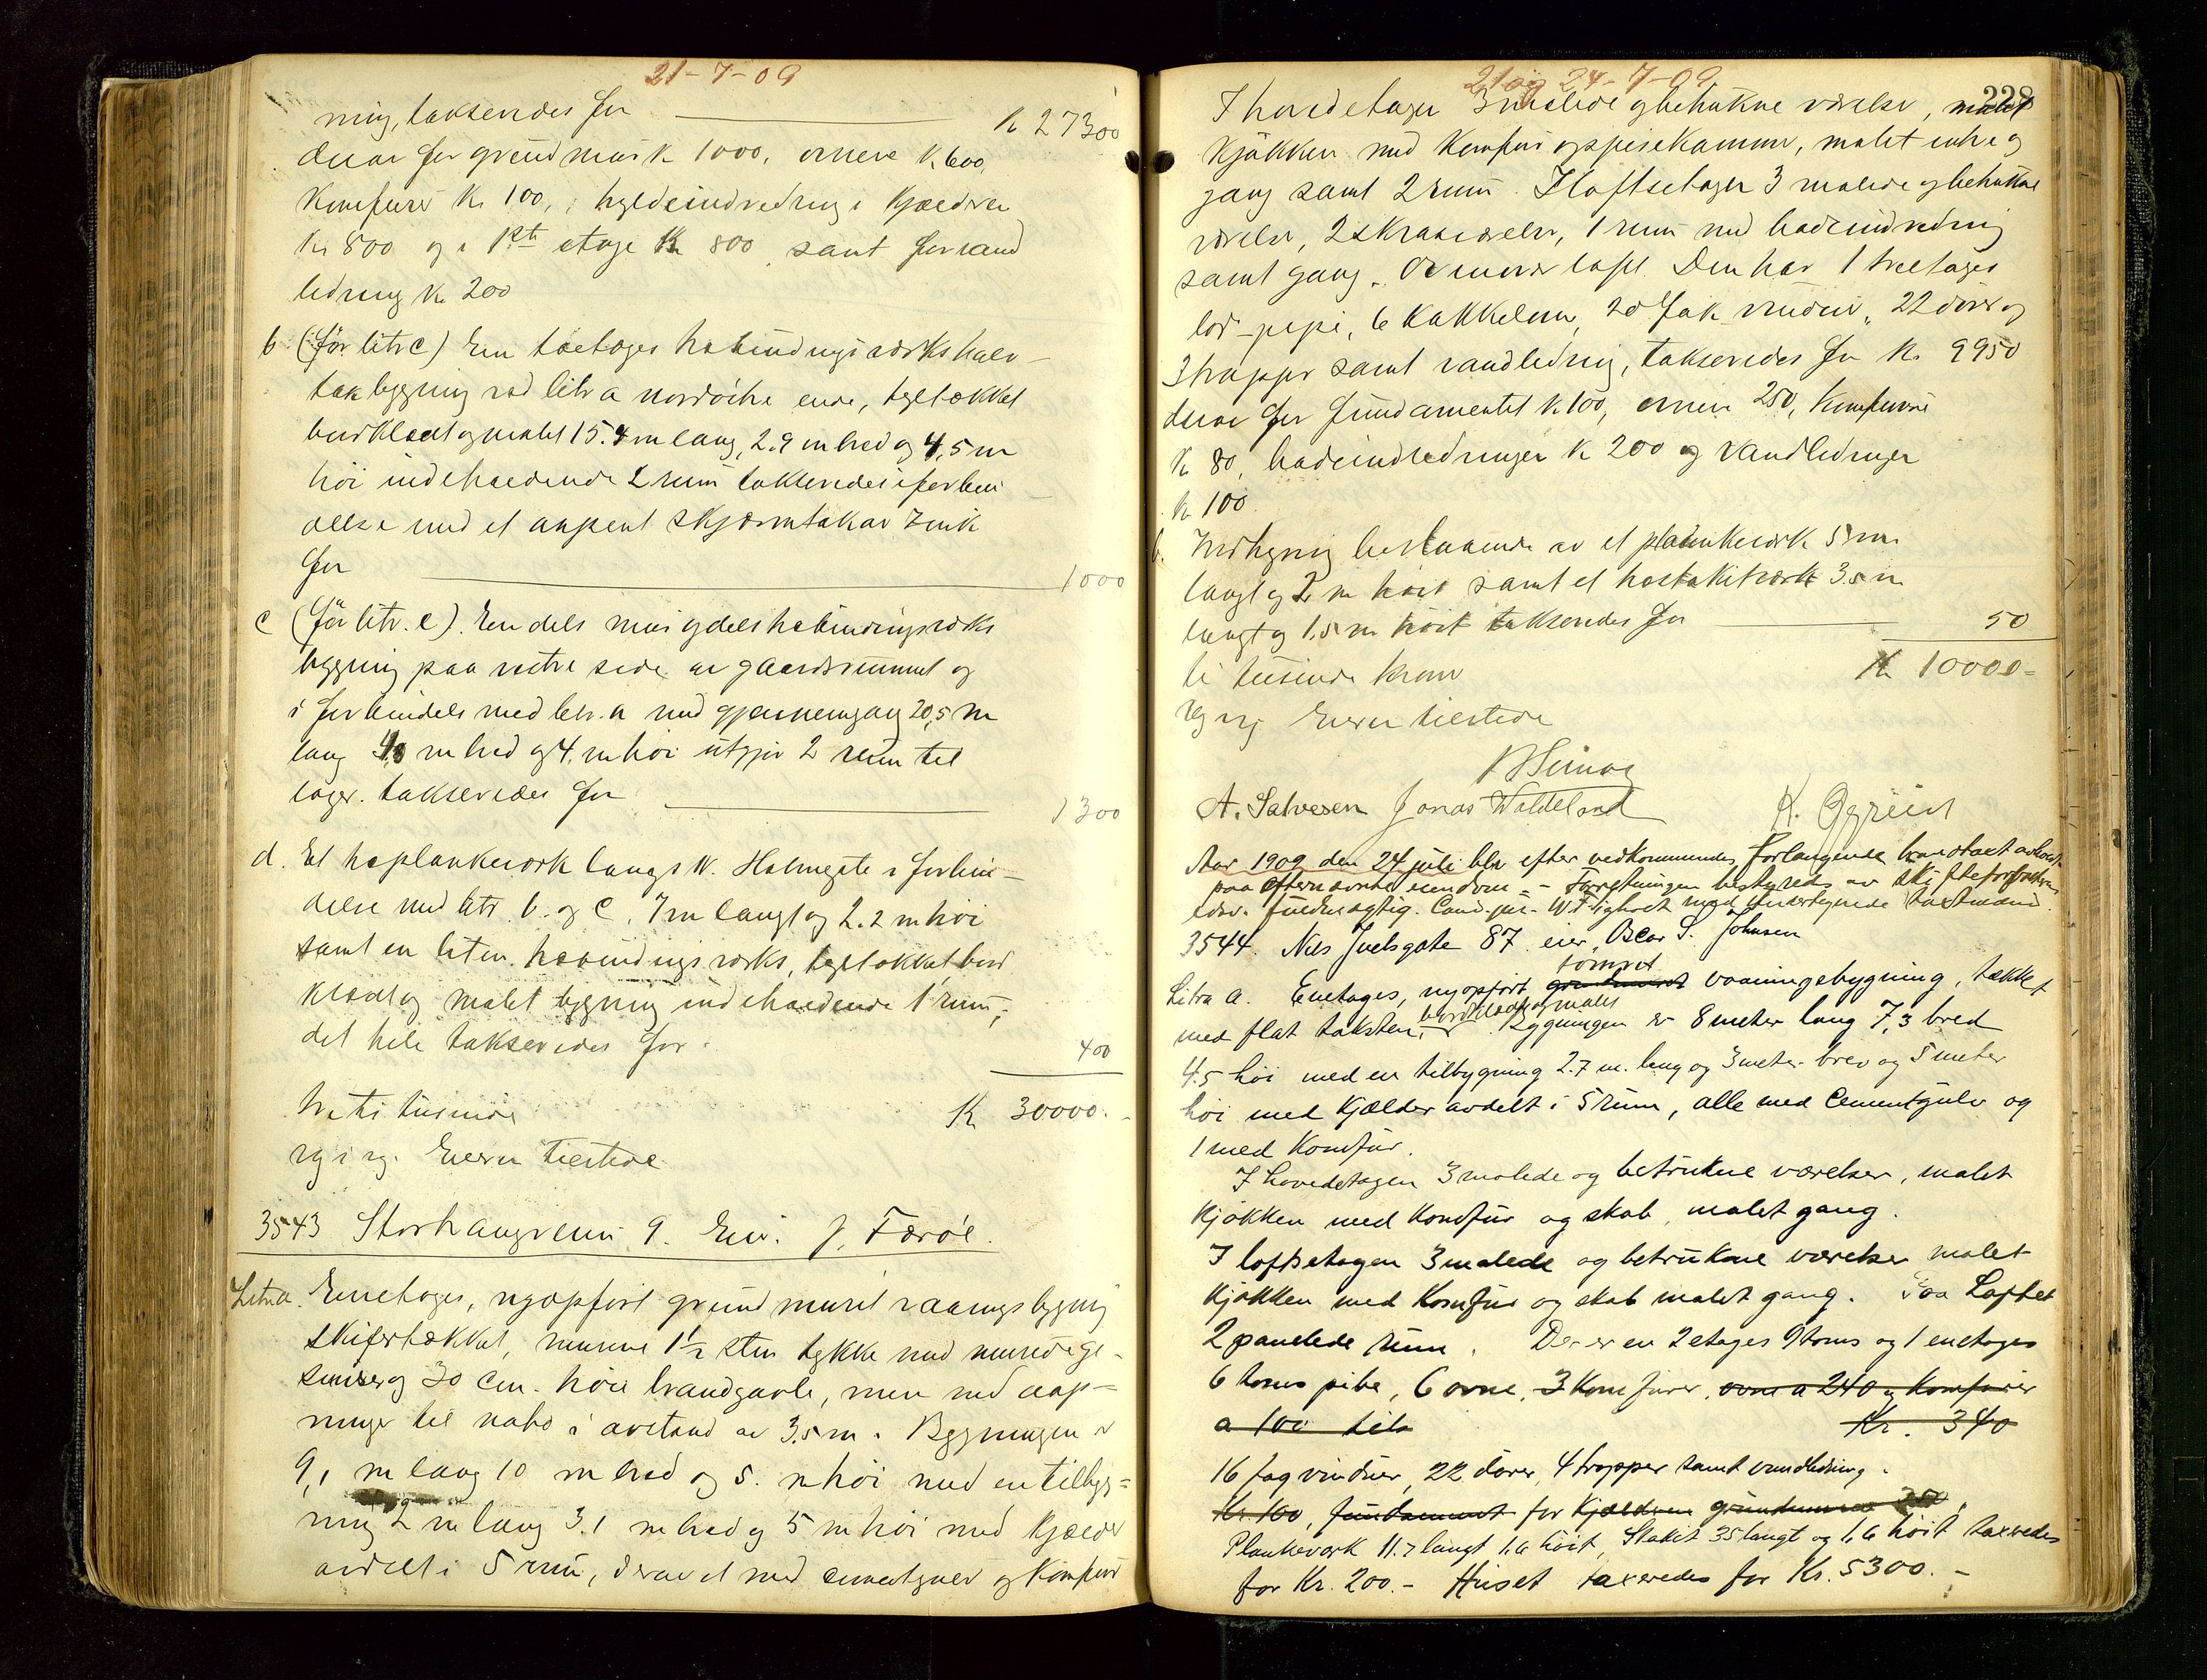 21-7-09
ning, takseredes for K 27300
derav for grundmur k 1000, ovnene k 600,
Komfurer Kr 100, hyldeindredning i Kjælderen
Kr 800 og i 1ste etage Kr 800 samt for vand
ledning Kr 200
b. (før litr c) En toetages bindingsverks halv
tak bygning ved litr a nordøstre ende, tegltækket
bordklædt og malet 15.4 m lang, 2.9 m bred og 4,5 m
høi indeholdende 2 rum takseredes i forbin
delse med et aapent skjærmtak av Zink
for 1000
c (før litr. e). En dels mur og dels bindingsverks
bygning paa vestre side av gaardsrummet og
i forbindelse med litr. a med gjennemgang 20,5 m
lang m bred og 4. m høi utgjør 2 rum til
lager. takseredes for 1300
d. Et plankeverk langs N. Holmegate i forbin-
delse med litr. b. og c. 7 m langt og 2.2 m høi
samt en liten bindingsverks, tegltækket bord
klædt og malet bygning indeholdende 1 rum,
det hele takseredes for. 400
Tretti tusinde K 30000.-
rg i rg. Eieren tilstede.
3543 Storhaugveien 9. Eier. J. Færøe.
Litr a. Enetages, nyopført grundmuret vaaningsbygning
skifertækket, murene 1½ sten tykke med murede ge-
simser og 30 cm. høie brandgavle, men med aap-
ninger til nabo i avstand av 3.5 m. Bygningen er
9,1 m lang 10 m bred og 5. m høi med en tilbyg=
ning 2 m lang 3.1 m bred og 5 m høi med kjælder
avdelt i 5 rum, derav et med cementgulv og Komfur
21 og 24-7-09
228
I hovedetagen 3 malede og betrukne værelser, malet
kjøkken med Komfur og spisekammer, malet entre og
gang samt 2 rum. I loftsetagen 3 malede og betrukne
værelser, 2 skraaværelser, 1 rum med badeindredning
samt gang. Øverst loft. Den har 1 toetages
pipe, 6 Kakkelovne, 20 fak vinduer, 22 dører og
3 trapper samt vandledning, takseredes for Kr. 9950
derav for fundamentet k 100, ovnene 250, Komfurene
K 80, badeindredningen k 200 og Vandledningen
K 100
b. Indhegning bestaaende av et plankeverk 5 m
langt og 2 m høit samt et stakitverk 3.5 m
langt og 1,5 m høit takseredes for 50
ti tusinde kroner Kr 10000=
rg rg Eieren tilstede
A. Salvesen Jonas Waldeland
Aar 1909 den 24 juli blev efter vedkommendes forlangende brandtaxt avholdt
paa efternævnte eiendom.- Forretningen bestyredes av skifteforvalterens
edsv. fuldmægtig. Cand. jur. med undertegnede taxtmænd
3544. Nils Juelsgate 87 eier Oscar S. Johnsen
Litra a. Enetages, nyopført grundmuret tømret vaaningsbygning, tækket
med flat taksten, bordklædt og malet. Bygningen er 8 meter lang 7,3 bred
4.5 høi med en tilbygning 2.7 m. lang og 3 meter bred og 5 meter
høi med Kjælder avdelt i 5 rum, alle med Cementgulv og
1 med Komfur.
I hovedetagen 3 malede og betrukne værelser, malet
kjøkken med Komfur og skab, malet gang.
I loftsetagen 3 malede og betrukne værelser malet
kjøkken med Komfur og skab malet gang. Paa Loftet
2 panelede rum. Der er en 2 etages 9 toms og 1 enetages
6 toms pibe, 6 ovne, 3 Komfurer, ovne a 240 og Komfurer
a 100 Kr. 340
16 fag vinduer, 22 dører, 4 trapper samt vandledning.
Kr. 100, fundament for Kjælderen grundmur 250,
Plankeværk 11.7 langt 1.6 høit, Stakit 35 langt og 1,6 høit taxeredes
for Kr. 200.- Huset taxeredes for Kr. 5300.-